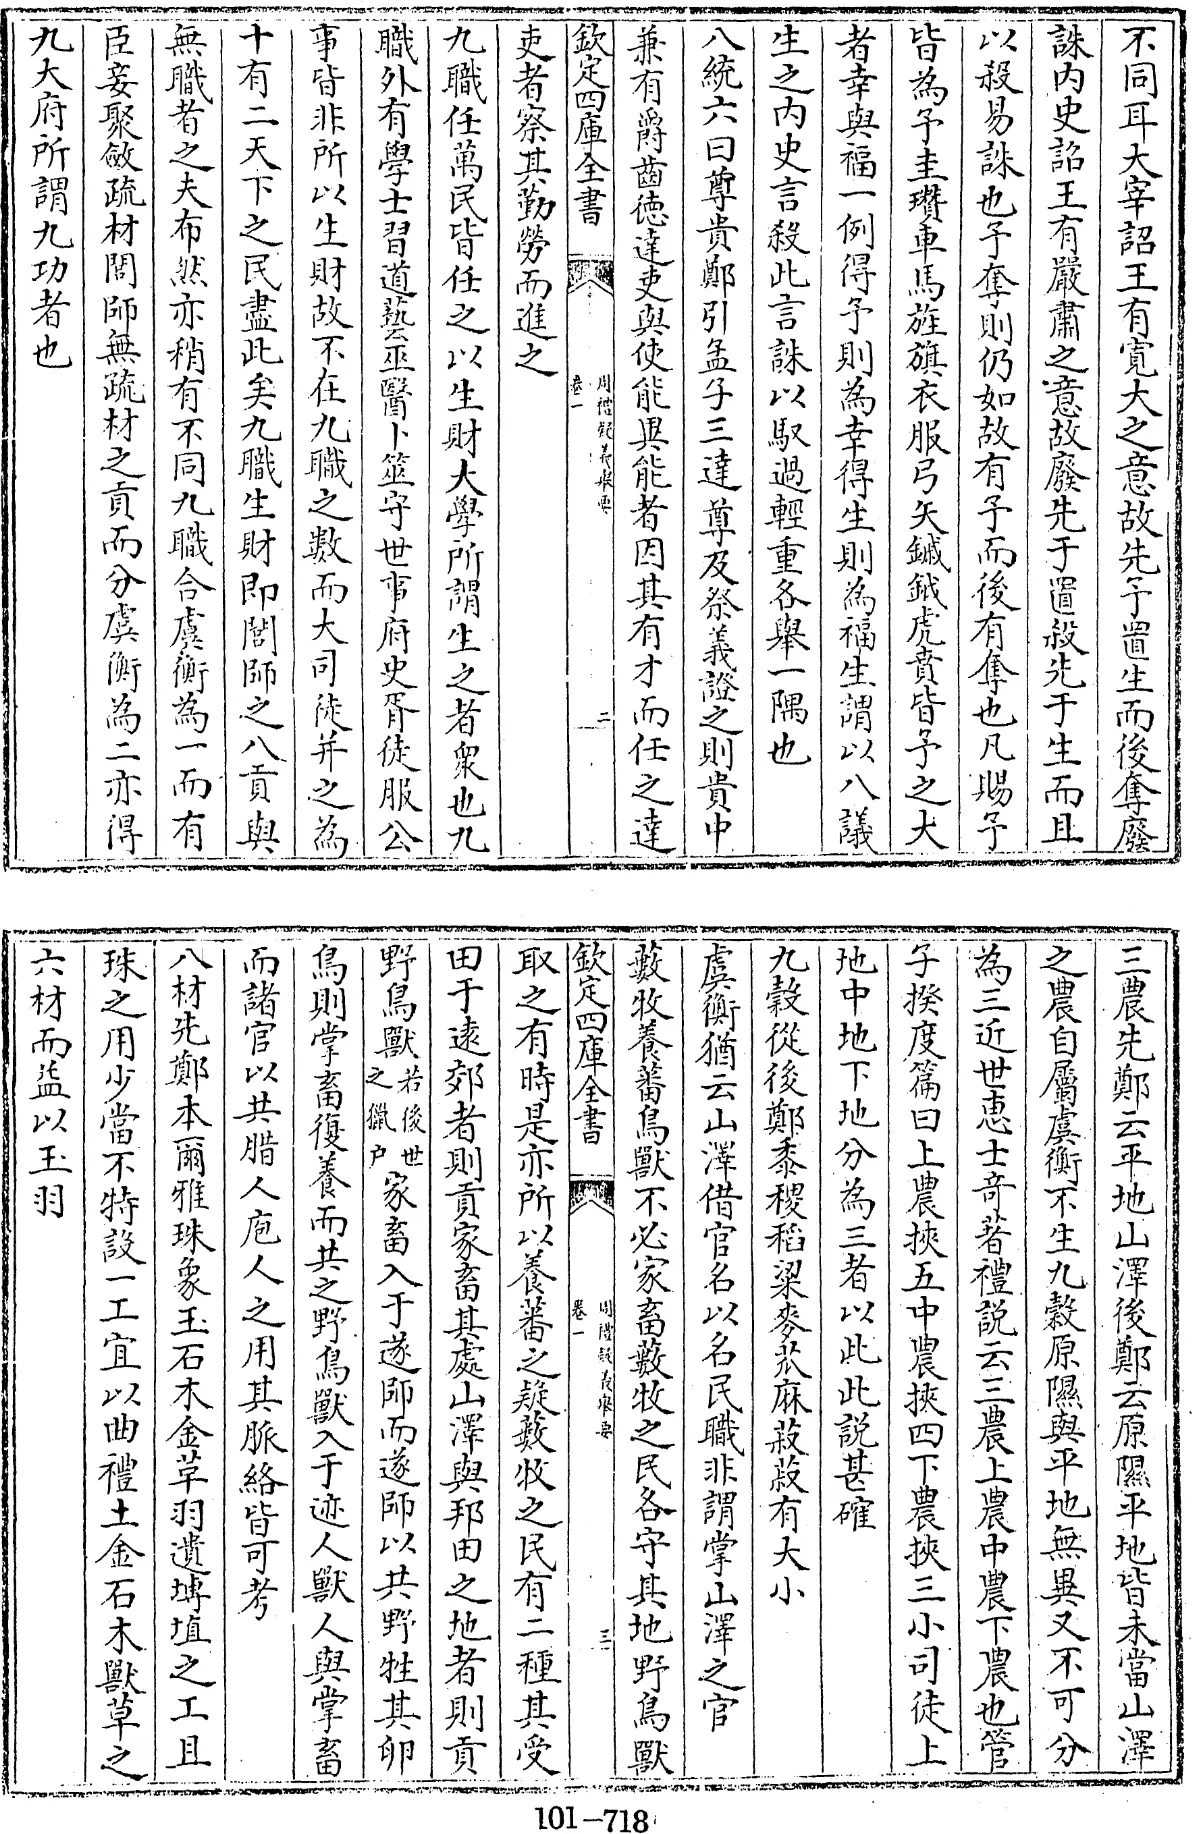 不同耳大宰詔王有寛大之意故先予置生而後奪廢
誅内史詔王有嚴肅之意故廢先于置殺先于生而且
以殺易誅也予奪則仍如故有予而後有奪也凡賜予
皆為予圭瓚車馬旌旗衣服弓矢鈇鉞虎賁皆予之大
者幸與福一例得予則為幸得生則為福生謂以八議
生之内史言殺此言誅以馭過輕重各舉一隅也
八統六曰尊貴鄭引孟子三達尊及祭義證之則貴中
兼有爵齒徳達吏與使能異能者因其有才而任之達
欽定四庫全書
周禮疑義舉要
卷一
二
吏者察其勤勞而進之
九職任萬民皆任之以生財大學所謂生之者衆也九
職外有學士習道藝巫醫卜筮守世事府史胥徒服公
事皆非所以生財故不在九職之數而大司徒并之為
十有二天下之民盡此矣九職生財即閭師之八貢與
無職者之夫布然亦稍有不同九職合虞衡為一而有
臣妾聚斂疏材閭師無疏材之貢而分虞衡為二亦得
九大府所謂九功者也
三農先鄭云平地山澤後鄭云原隰平地皆未當山澤
之農自屬虞衡不生九穀原隰與平地無異又不可分
為三近世惠士奇著禮説云三農上農中農下農也管
子揆度篇曰上農挾五中農挾四下農挾三小司徒上
地中地下地分為三者以此此説甚確
九穀從後鄭黍稷稻粱麥苽麻菽菽有大小
虞衡猶云山澤借官名以名民職非謂掌山澤之官
藪牧養蕃鳥獸不必家畜藪牧之民各守其地野鳥獸
欽定四庫全書
周禮疑義舉要
卷一
三
取之有時是亦所以養蕃之疑藪牧之民有二種其受
田于逺郊者則貢家畜其處山澤與邦田之地者則貢
野鳥獸若後世之獵户家畜入于遂師而遂師以共野牲其卵
鳥則掌畜復養而共之野鳥獸入于迹人獸人與掌畜
而諸官以共腊人庖人之用其脈絡皆可考
八材先鄭本爾雅珠象玉石木金草羽遺塼埴之工且
珠之用少當不特設一工宜以曲禮土金石木獸草之
六材而益以玉羽
101-718